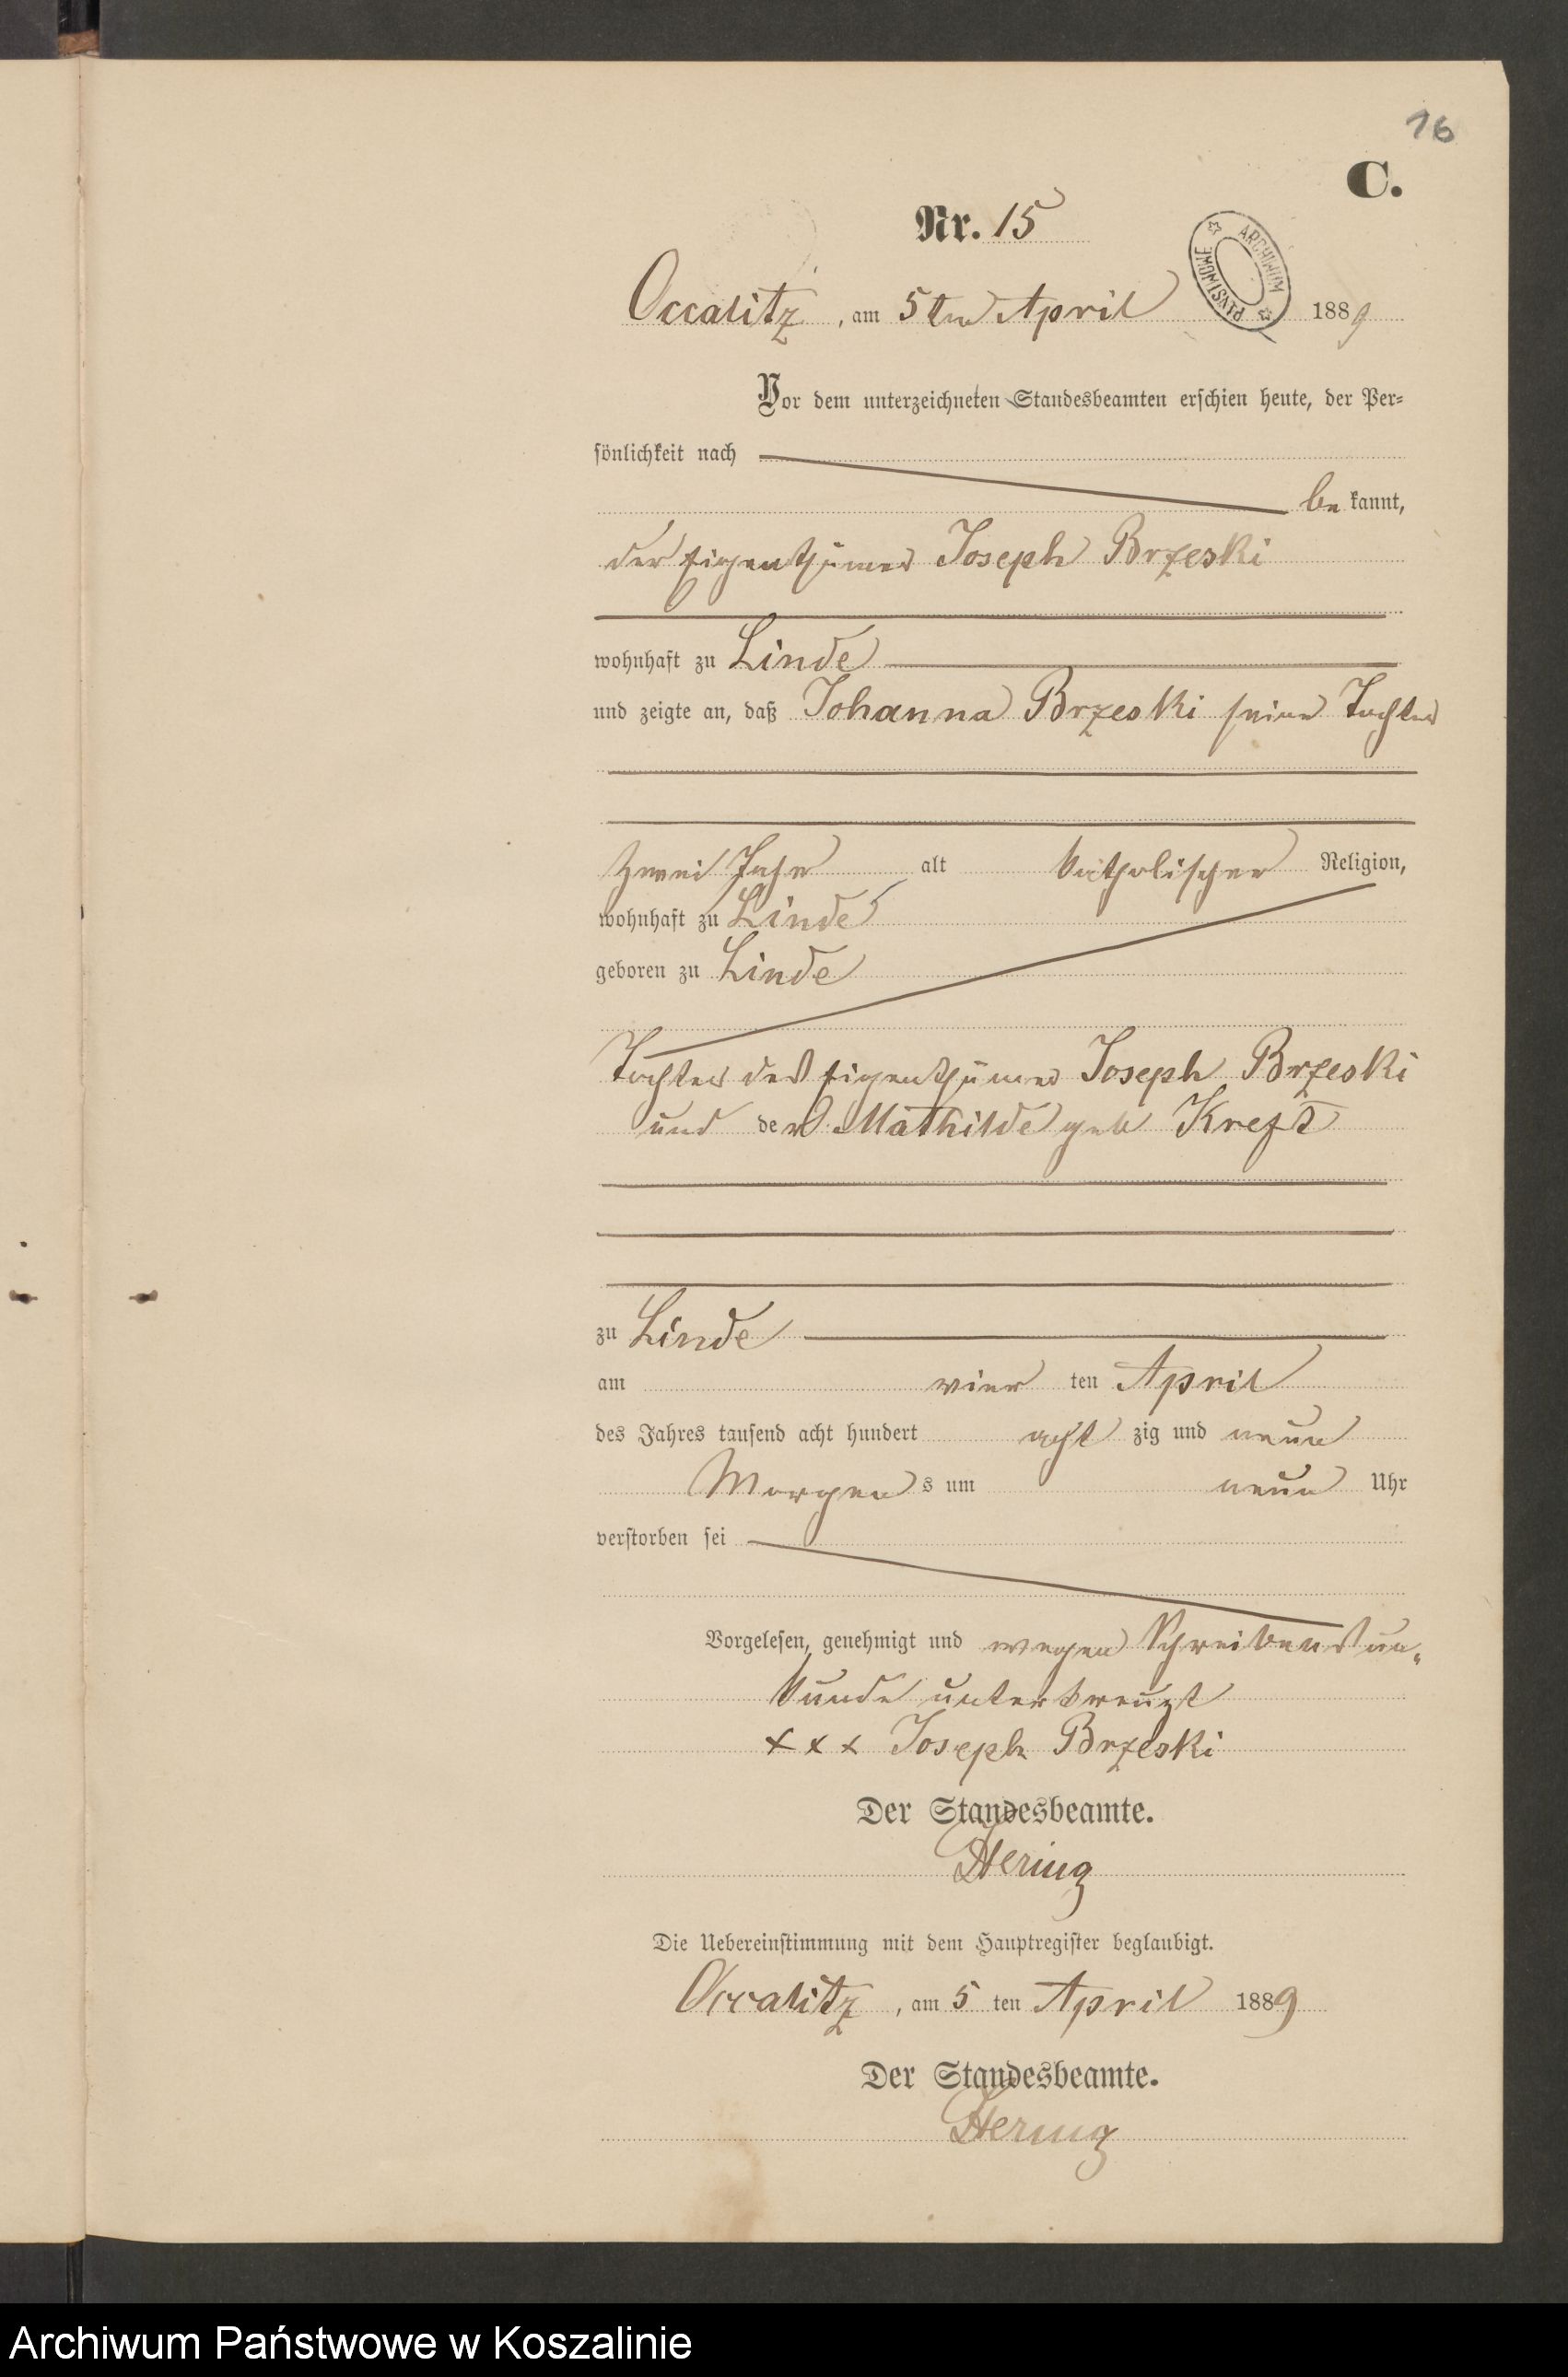 16
C.
Nr. 15
ARCHIWUM PAŃSTWOWE
Occalitz, am 5ten April 1889
Vor dem unterzeichneten Standesbeamten erschien heute, der Per-
sönlichkeit nach
bekannt,
der Eigenthümer Joseph Brzeski
wohnhaft zu Linde
und zeigte an, daß Johanna Brzeski seine Tochter
zwei Jahr alt katholischer Religion,
wohnhaft zu Linde
geboren zu Linde
Tochter des Eigenthümer Joseph Brzeski
und der Mathilde geb Kreft
zu Linde
am vier ten April
des Jahres tausend acht hundert acht zig und neun
Morgen s um neun Uhr
verstorben sei
Vorgelesen, genehmigt und wegen Schreibens un-
kunde unterkreuzt
x x x Joseph Brzeski
Der Standesbeamte.
Hering
Die Uebereinstimmung mit dem Hauptregister beglaubigt.
Occalitz, am 5 ten April 1889
Der Standesbeamte.
Hering
Archiwum Państwowe w Koszalinie